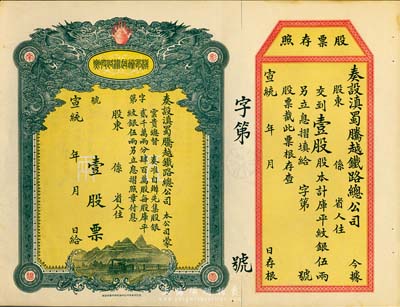 股票存照
奏設滇蜀騰越鐵路總公司 今據
股東 係 省 人住
交到壹股股本計庫平紋銀伍兩
另立息摺填給 字第 號
股票截此票根存查
宣統 年 月 日存根
字第 號
奏設滇蜀騰越鐵路總公司 本公司蒙
雲貴總督 奏准自辦先集股銀
貳千萬兩分肆百萬股每股庫平
紋銀伍兩另立息摺照章付息
字第 號
股東 係 省 人住
壹股票
宣統 年 月 日給